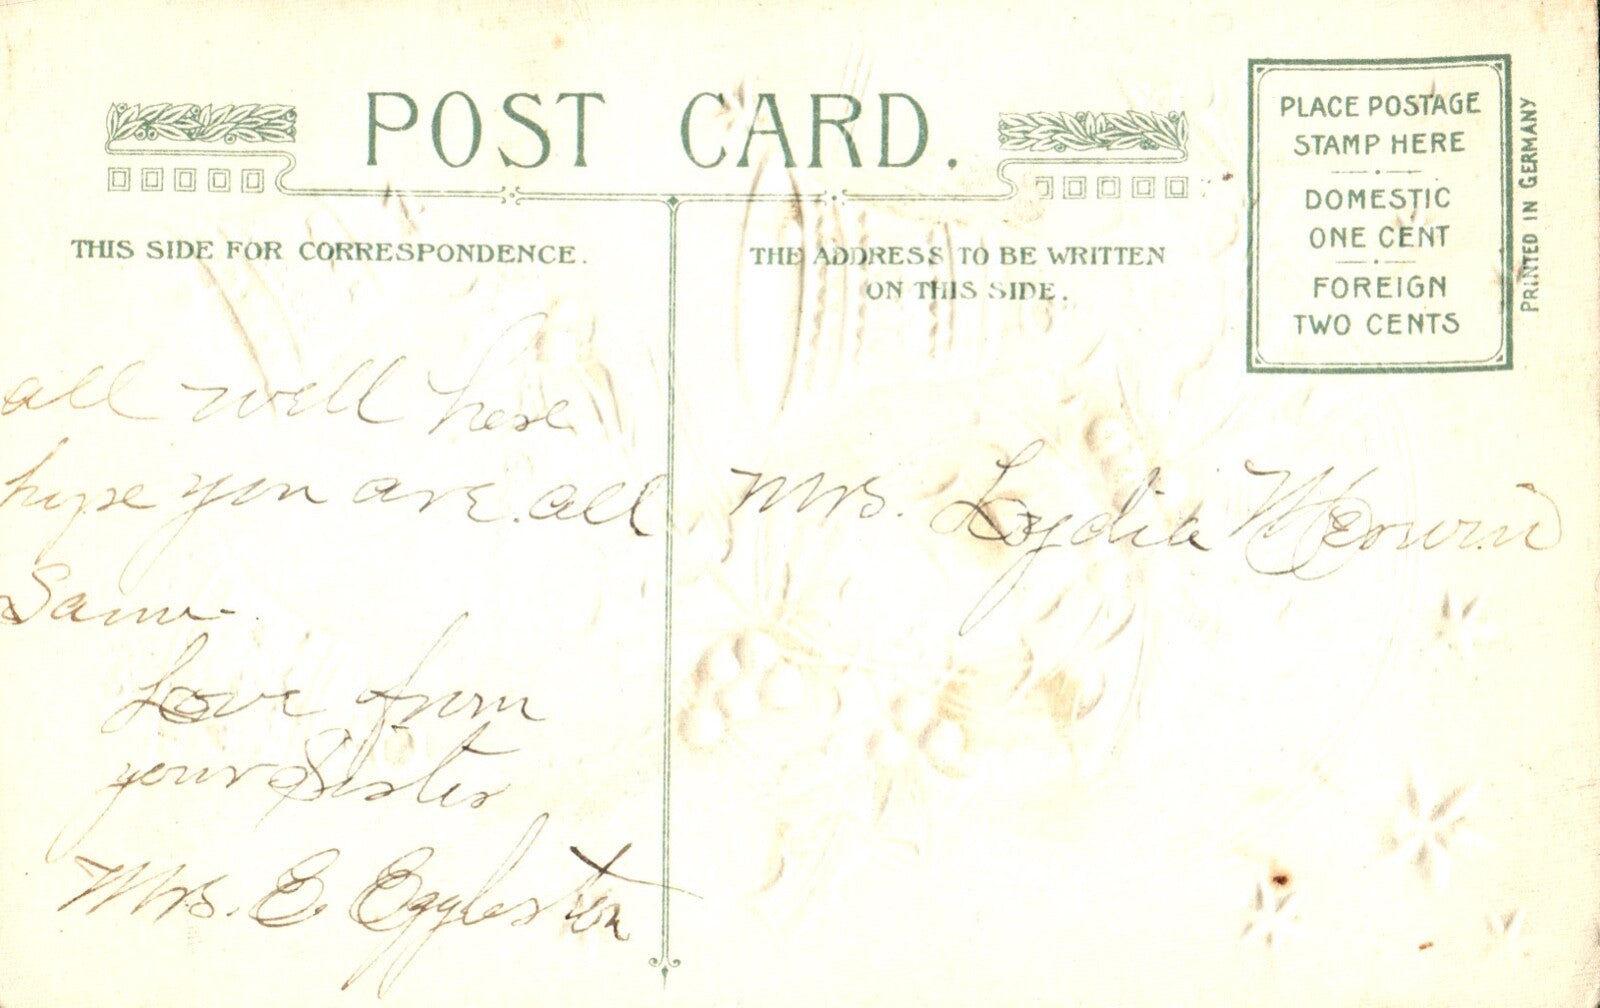 POST CARD.
THIS SIDE FOR CORRESPONDENCE.
all well here
hope you are all
Same.
Love from
your Sister
Mrs. E. Eggleston
THE ADDRESS TO BE WRITTEN
ON THIS SIDE.
Mrs. Lydia Merwin
PLACE POSTAGE
STAMP HERE
DOMESTIC
ONE CENT
FOREIGN
TWO CENTS
PRINTED IN GERMANY